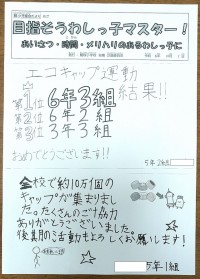 目指そうわしっ子マスター！
あいさつ・時間・メリハリのあるわしっ子に
エコキャップ運動
結果!!
第1位 6年3組
第2位 6年2組
第3位 3年3組
おめでとうございます!!
5年2組
全校で約10万個の
キャップが集まりまし
た。たくさんのご協力
ありがとうございました。
後期の活動もよろしくお願いします！
5年1組